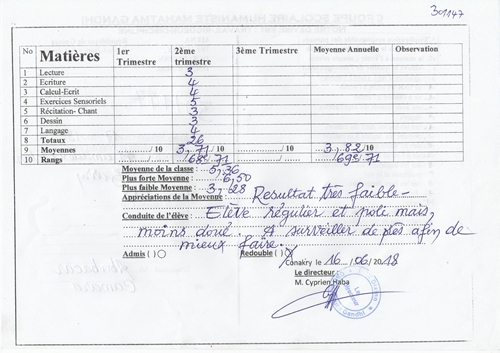 301147
No Matières 1er Trimestre 2ème trimestre 3ème Trimestre Moyenne Annuelle Observation
1 Lecture 3
2 Ecriture 4
3 Calcul-Ecrit 4
4 Exercices Sensoriels 5
5 Récitation- Chant 3
6 Dessin 3
7 Langage 4
8 Totaux 26
9 Moyennes ............/ 10 3,71/ 10 ............/ 10 3,82/ 10
10 Rangs 68e/71 69e/71
Moyenne de la classe : 5,36
Plus forte Moyenne : 6,50
Plus faible Moyenne : 3,28
Appréciations de la Moyenne : Resultat très faible-
Conduite de l'élève : Elève régulier et poli mais,
moins doué. A surveiller de près afin de
mieux faire.
Admis ( ) Redouble (X)
Conakry le 16/06/2018
Le directeur:
M. Cyprien Haba